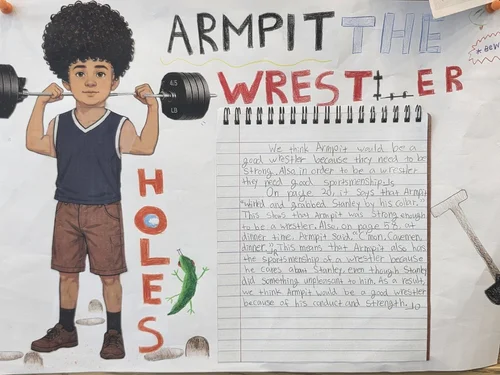 ARMPIT THE
WRESTLER
HOLES
We think Armpit would be a
good wrestler because they need to be
strong. Also in order to be a wrestler
they need good sportsmenship.
On page 20, it says that Armpit
"whirld and grabbed Stanley by his collar."
This shows that Armpit was strong enough
to be a wrestler. Also, on page 58, at
dinner time, Armpit said "C'mon, Caveman,
dinner". This means that Armpit also has
the sportsmenship of a wrestler because
he cares about Stanley, even though Stanley
did something unpleasant to him. As a result,
we think Armpit would be a good wrestler
because of his conduct and strength.